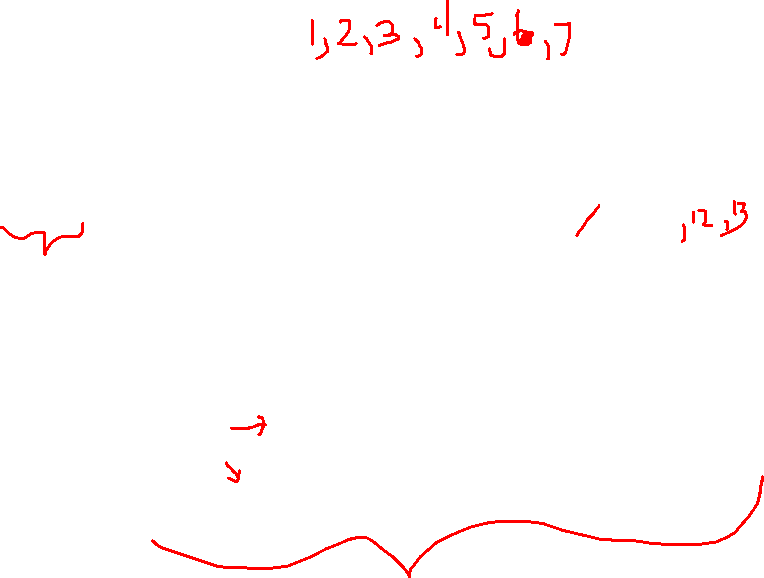 1,2,3,4,5,6,7
,12,13